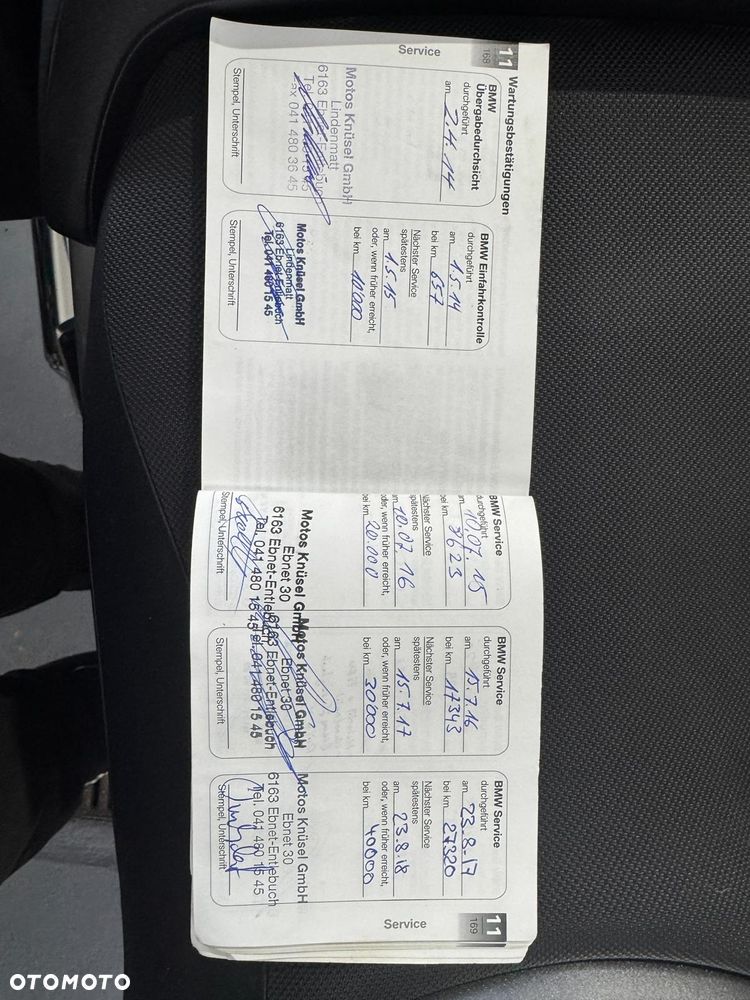 11
168
Service
Wartungsbestätigungen
BMW
Übergabedurchsicht
durchgeführt
am 2.4.14
Motos Knüsel GmbH
Lindenmatt
6163 Ebnet-Entlebuch
041 480 36 45
Stempel, Unterschrift
BMW Einfahrkontrolle
durchgeführt
am 1.5.14
bei km 657
Nächster Service
spätestens
am 1.5.15
oder, wenn früher erreicht,
bei km 10'000
Motos Knüsel GmbH
Lindenmatt
6163 Ebnet-Entlebuch
Tel. 041 480 15 45
Stempel, Unterschrift
BMW Service
durchgeführt
am 10.07.15
bei km 9623
Nächster Service
spätestens
am 10.07.16
oder, wenn früher erreicht,
bei km 20.000
Motos Knüsel GmbH
Ebnet 30
6163 Ebnet-Entlebuch
Tel. 041 480 15 45
Stempel, Unterschrift
BMW Service
durchgeführt
am 15.7.16
bei km 17343
Nächster Service
spätestens
am 15.7.17
oder, wenn früher erreicht,
bei km 30'000
Motos Knüsel GmbH
Ebnet 30
6163 Ebnet-Entlebuch
Tel. 041 480 15 45
Stempel, Unterschrift
BMW Service
durchgeführt
am 23.8.17
bei km 27320
Nächster Service
spätestens
am 23.8.18
oder, wenn früher erreicht,
bei km 40000
Motos Knüsel GmbH
Ebnet 30
6163 Ebnet-Entlebuch
Tel. 041 480 15 45
Stempel, Unterschrift
Service
11
169
OTOMOTO